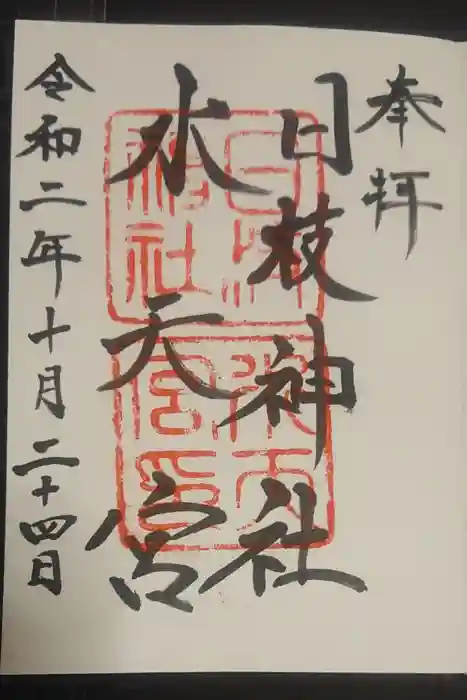 奉拝
日枝神社
水天宮
令和二年十月二十四日
日枝神社
水天宮印